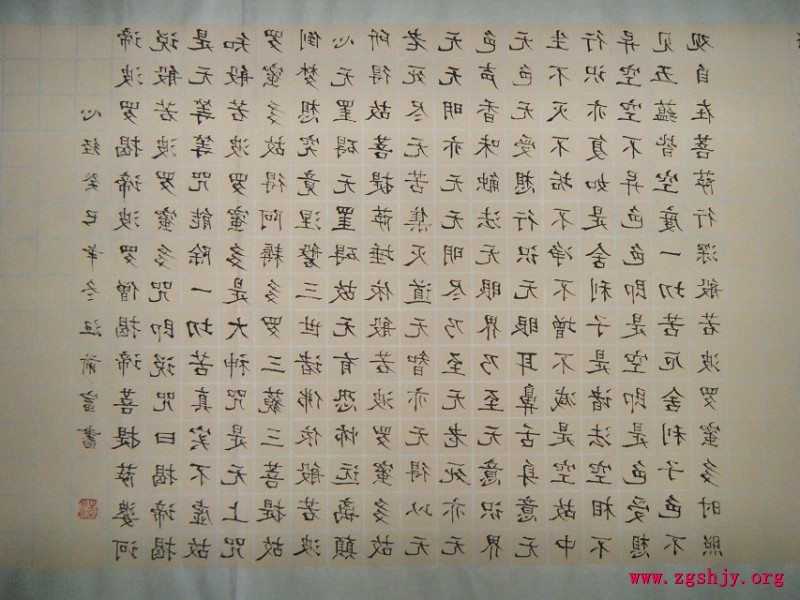 观自在菩萨行深般若波罗蜜多时照
见五蕴皆空度一切苦厄舍利子色不
异空空不异色色即是空即是色受想
行识亦复如是舍利子是诸法空相不
生不灭不垢不净不增不减是空故中
无色无受想行识无眼耳鼻舌身意无
色声香味触法无眼界乃至无意识界
无无明亦无无明尽乃至无老死亦无
老死尽无苦集灭道无智亦无得以无
所得故菩提萨埵依般若波罗蜜多故
心无罣碍无罣碍故无有恐怖远离颠
倒梦想究竟涅磐三世诸佛依般若波
罗蜜多故得阿耨多罗三藐三菩提故
知般若波罗蜜多是大神咒是无上咒
是无等等咒能除一切苦真实不虚故
说般若波罗蜜多咒即说咒曰揭谛揭
谛波罗揭谛波罗僧揭谛菩提萨婆诃
心经癸巳年冬汪前富書
www.zgshjy.org